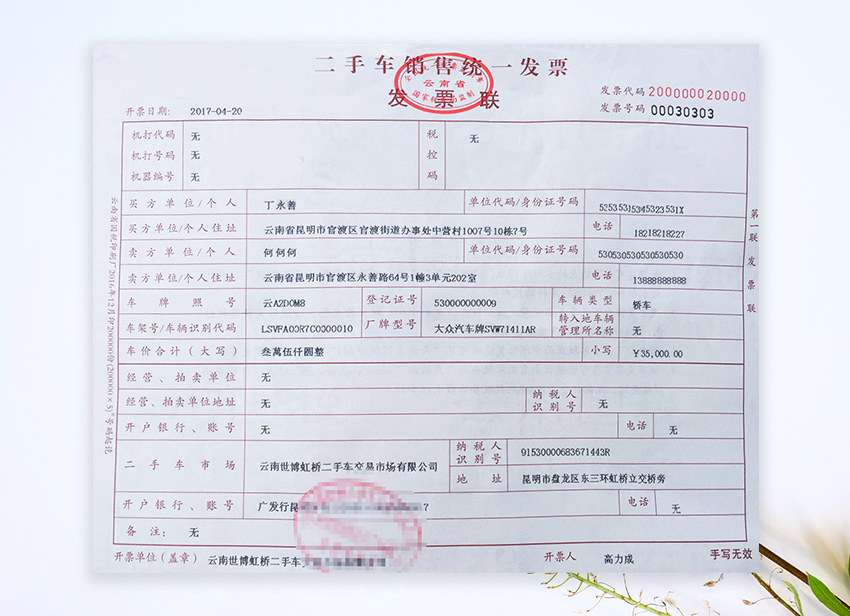 二手车销售统一发票
云南省
国家税务局监制
发票联
发票代码 200000020000
发票号码 00030303
开票日期: 2017-04-20
机打代码 无
机打号码 无
机器编号 无
税控码 无
买方单位/个人 丁永善 单位代码/身份证号码 5253531534532353​1X
买方单位/个人住址 云南省昆明市官渡区官渡街道办事处中营村1007号10栋7号 电话 18218218227
卖方单位/个人 何何何 单位代码/身份证号码 530530530530530530
卖方单位/个人住址 云南省昆明市官渡区永善路64号1幢3单元202室 电话 13888888888
车牌照号 云A2D0M8 登记证号 530000000009 车辆类型 轿车
车架号/车辆识别代码 LSVFA00R7C0000010 厂牌型号 大众汽车牌SVW71411AR 转入地车辆管理所名称 无
车价合计(大写) 叁萬伍仟圆整 小写 ¥35,000.00
经营、拍卖单位 无
经营、拍卖单位地址 无 纳税人识别号 无
开户银行、账号 无 电话 无
二手车市场 云南世博虹桥二手车交易市场有限公司 纳税人识别号 91530000683671443R
地址 昆明市盘龙区东三环虹桥立交桥旁
开户银行、账号 广发行昆 7 电话 无
备注: 无
开票单位(盖章) 云南世博虹桥二手车 开票人 高力成 手写无效
第一联 发票联
云南省国税印刷厂2016年12月印200000份(200000×5)
号码起讫